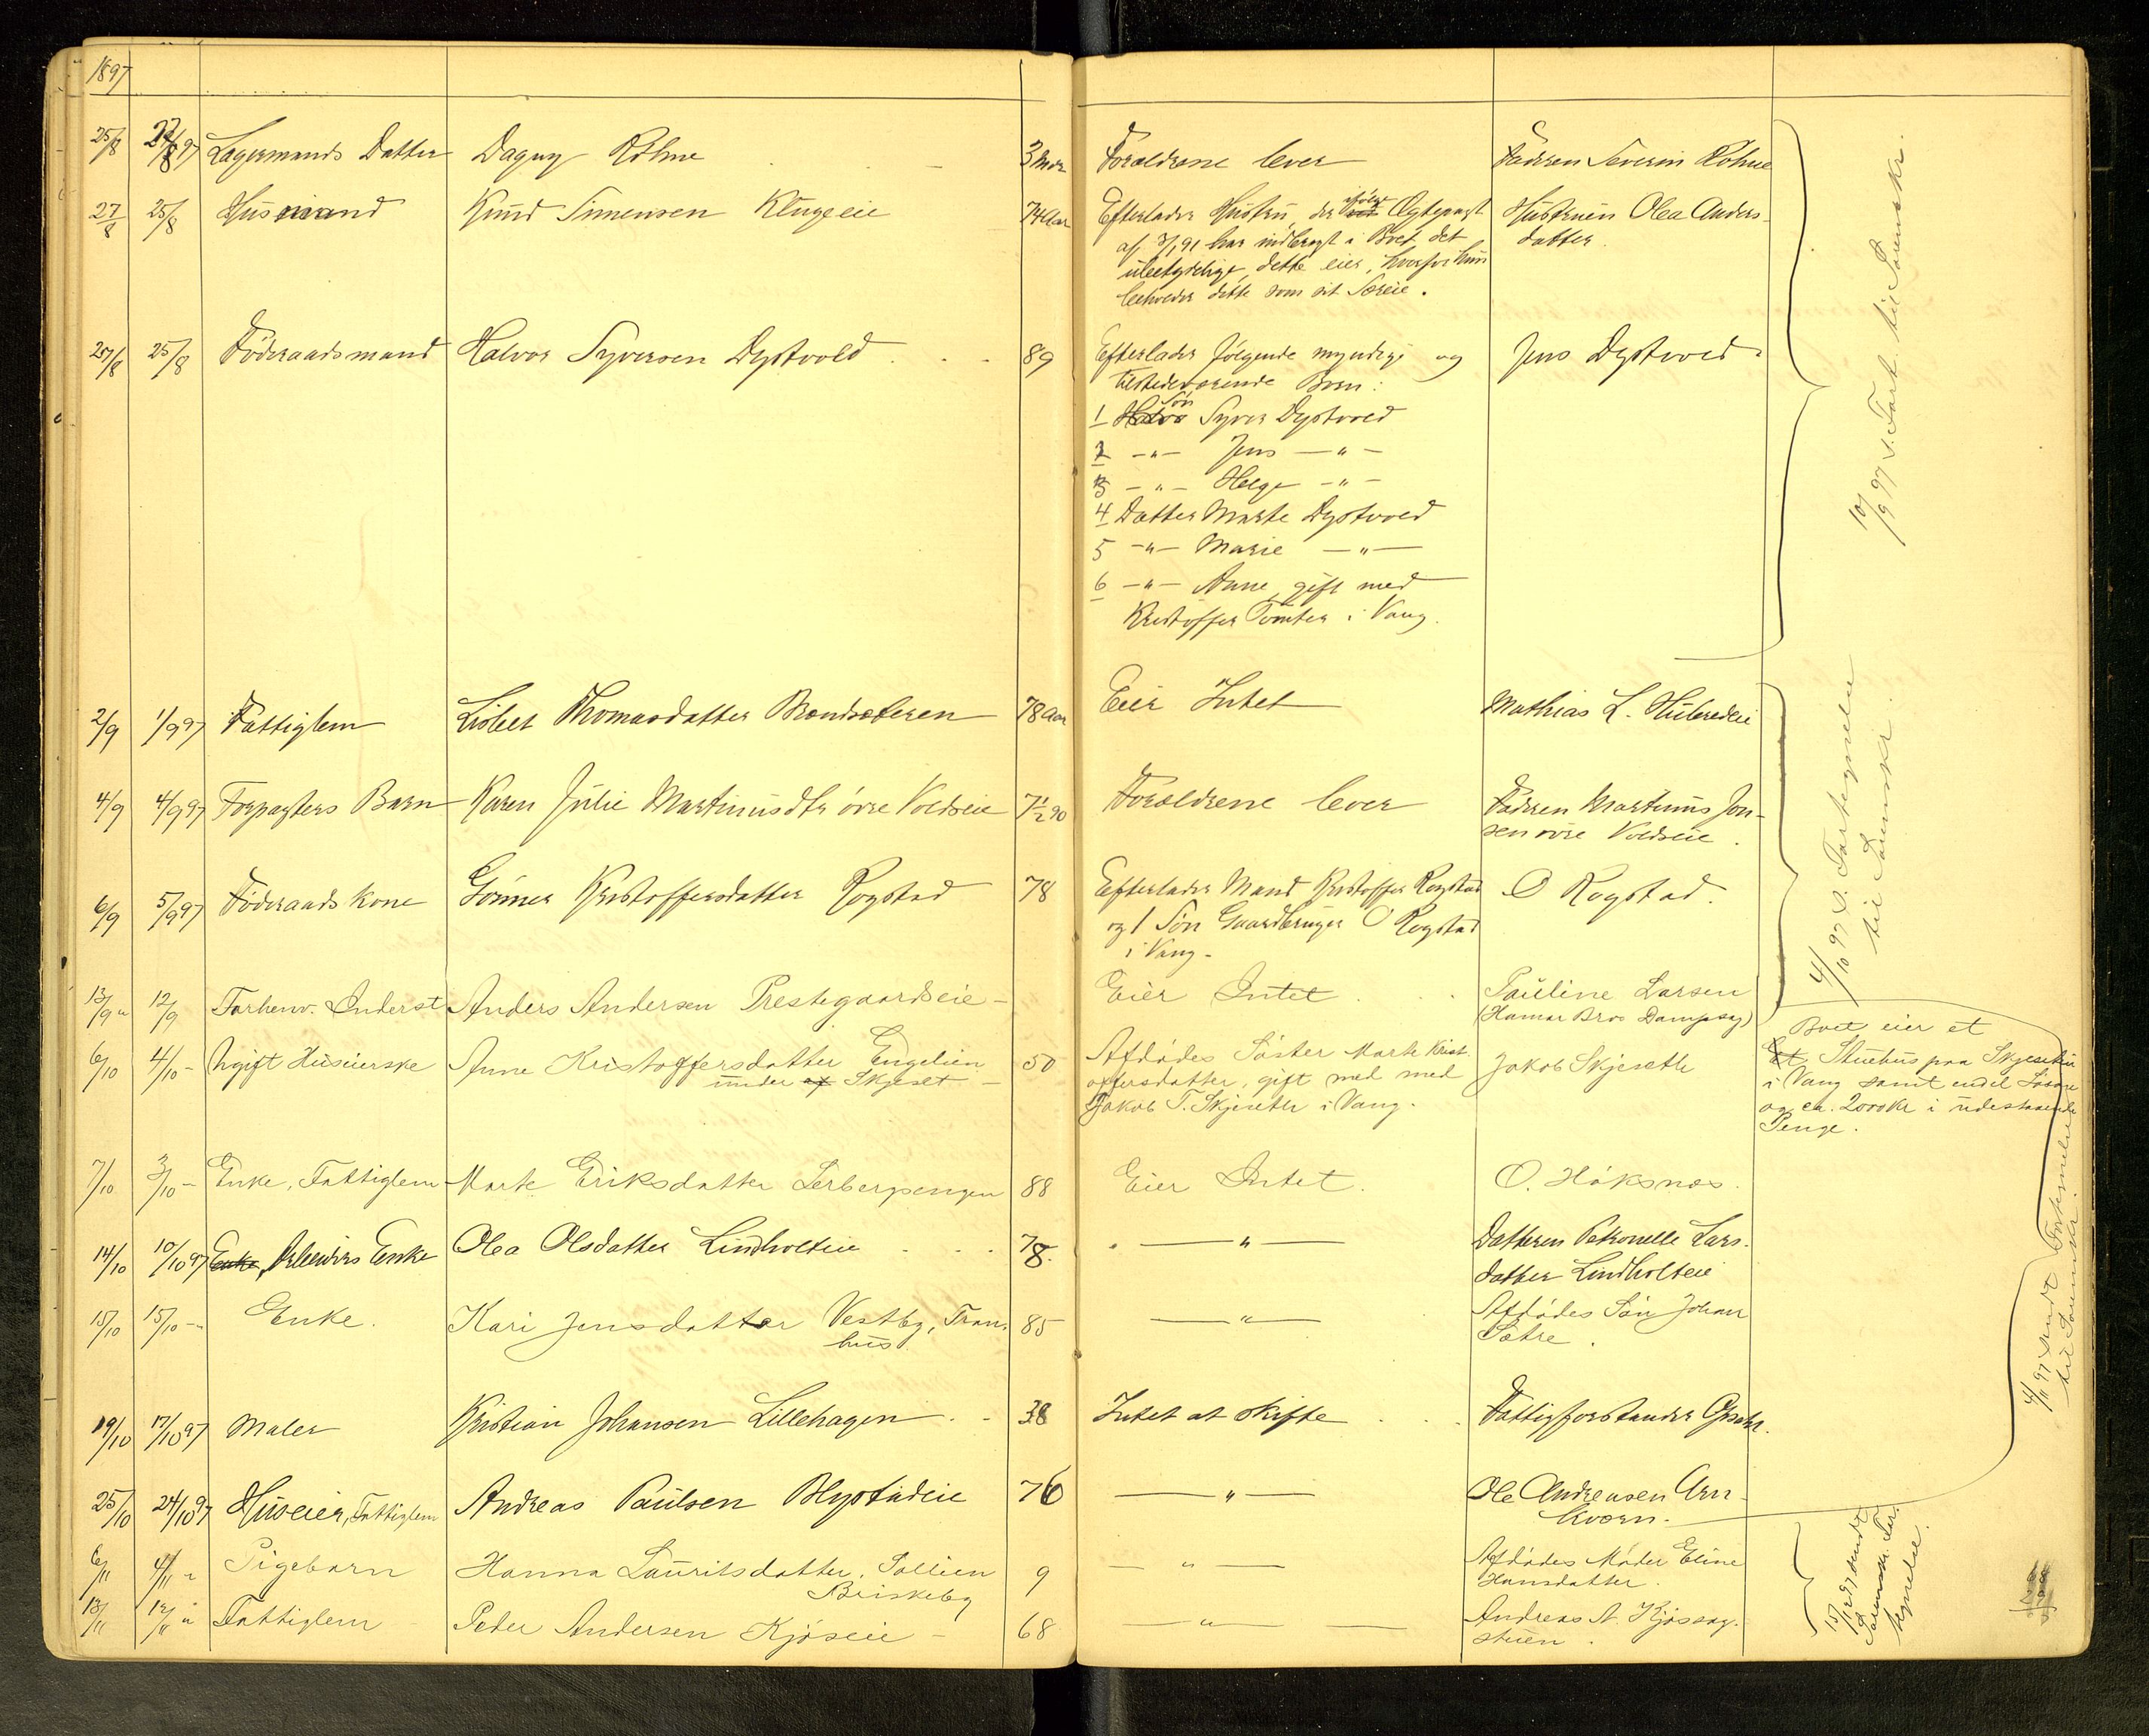 1897
25/8 27/8 97 Lagermands Datter Dagny Röhne 3 Mdr Forældrene lever Faderen Severin Röhne
27/8 25/8 Husmand Knud Simensen Klugeie 74 Aar Efterlader Hustru, der ifølge Ægtepagt Hustruen Olea Anders-
af 3/1 91 har indbragt i Boet det datter.
ubetydelige, dette eier, hvorfor hun
beholder dette som sit Særeie.
27/8 25/8 Föderaadsmand Halvor Syversen Dystvold 89 Efterlader følgende myndige og Jens Dystvold
tilstedeværende Børn:
1 Søn Syver Dystvold
2 -"- Jens -"-
3 -"- Helge -"-
4 Datter Marte Dystvold
5 -"- Marie -"-
6 -"- Anne, gift med
Kristoffer Tomter i Vang.
10/9 97 s. Fort. til Sorenskr.
2/9 1/9 97 Fattiglem Lisbet Thomasdatter Brendsæteren 78 Aar Eier Intet Mathias L. Hubredeie
4/9 4/9 97 Forpagters Barn Karen Julie Martinusdtr övre Voldseie 7 1/2 Forældrene lever Faderen Martinus Jon-
sen övre Voldseie.
6/9 5/9 97 Föderaads kone Gönner Kristoffersdatter Rogstad 78 Efterlader Mand Kristoffer Rogstad O Rogstad.
og 1 Søn Gaardbruger O Rogstad
i Vang.
13/9 " 12/9 Forhenv. Inderst Anders Andersen Prestegaardseie Eier Intet Pauline Larsen
(Hamar Bros Dampsag)
4/10 97 s. Fortegnelse
til Sorenskr.
6/10 4/10 - Ugift Huseierske Anne Kristoffersdatter Engelien 50 Afdødes Søster Marte Krist- Jakob Skjeseth Boet eier et
under Skjeset offersdatter, gift med med Stuehus paa Skjeseteie
Jakob T. Skjeseth i Vang. i Vang samt endel Løsøre
og ca. 2000 kr i udestaaende
Penge.
7/10 3/10 - Enke, Fattiglem Marte Eriksdatter Lerbergengen 88 Eier Intet. O. Höksnæs.
14/10 10/10 97 Enke, Arbeiders Enke Olea Olsdatter Lindholteie 78 - " - Datteren Petronelle Lars-
datter Lindholteie
15/10 15/10 - " Enke. Kari Jensdatter Vestby, Fran- 85 - " - Afdødes Søn Johan
hus. Sætre.
19/10 17/10 97 Maler Kristian Johansen Lillehagen 38 Intet at skifte Fattigforstander
25/10 24/10 97 Huseier, Fattiglem Andreas Paulsen Blystadeie 76 - " - Ole Andreasen Arn-
kværn.
4/11 97 sendt Fortegnelse
til Sorenskr.
6/11 4/11 " Pigebarn Hanna Lauritsdatter, Sollien 9 - " - Afdødes Moder Eline
Briskeby Hansdatter.
13/11 12/11 " Fattiglem Peder Andersen Kjöseie 68 - " - Andreas A. Kjössag-
stuen.
15/12 97 sendt
Sorenskr. For-
tegnelse.